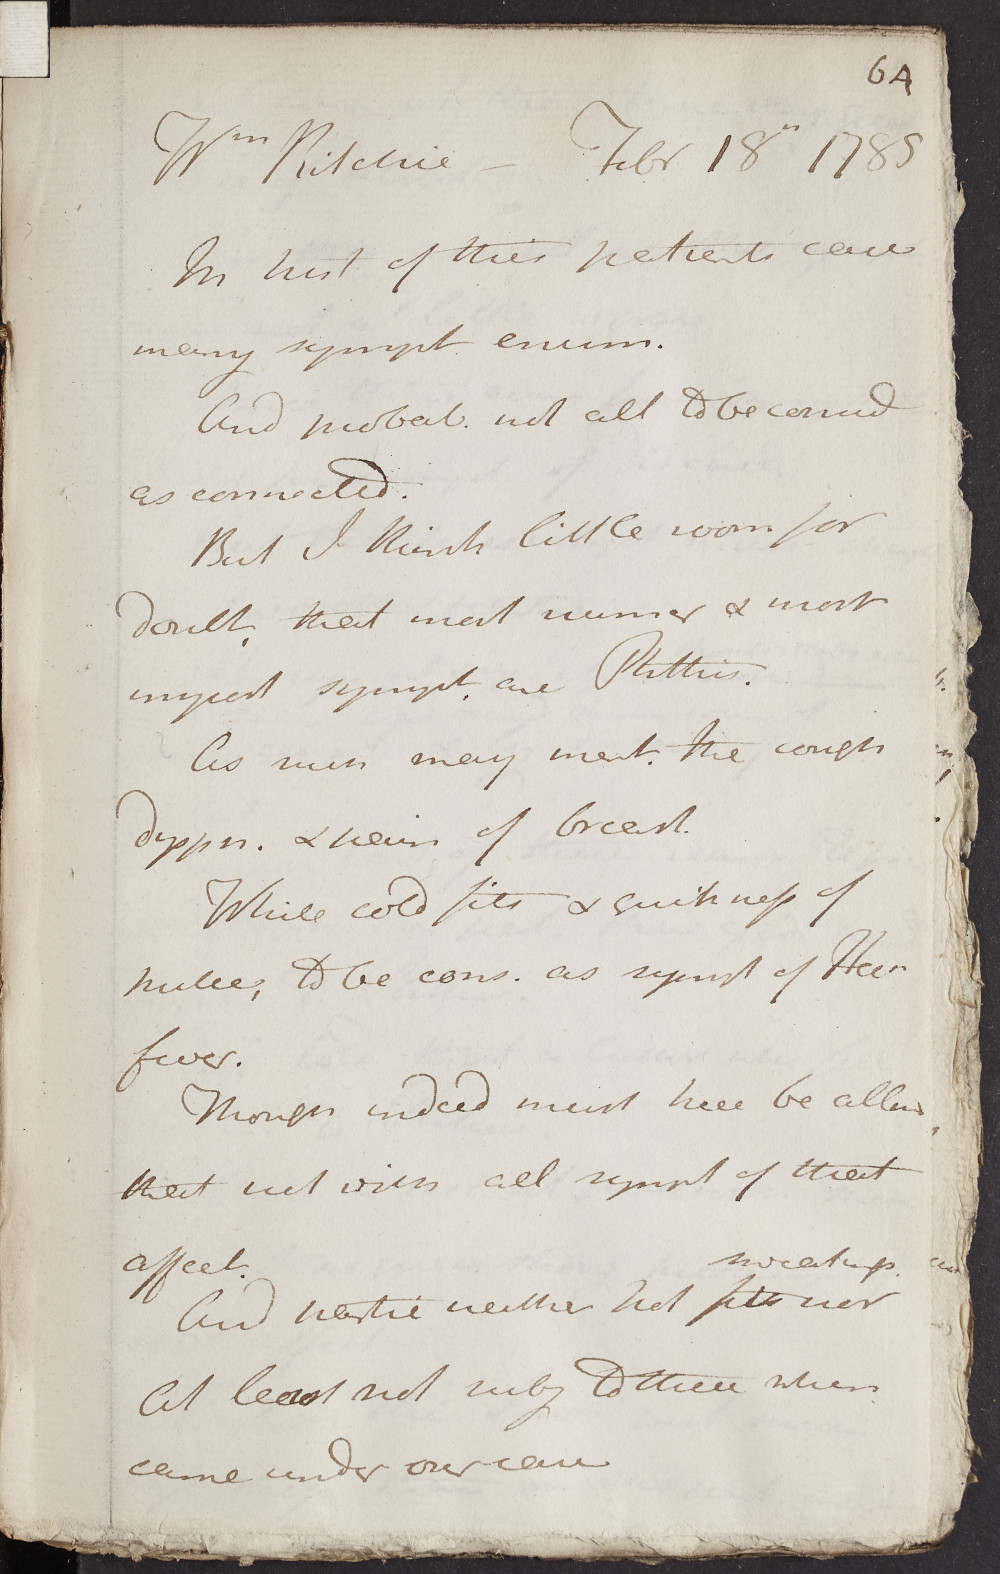 64
Wm Ritchie – Febr 18th 1785
In hist of this patients case
many sympt enum.
And probab. not all to be consid
as connected.
But I think little room for
doubt, that most numer & most
import sympt. are Phthis.
As such may ment. the cough
dyspn. & pain of breast.
While cold fits & quickness of
pulse, to be cons. as sympt of Hec
fever.
Though indeed must here be allow
that not with all sympt of that
affect.
sweatings.
And partic neither hot fits nor
At least not subj to these when
came under our care